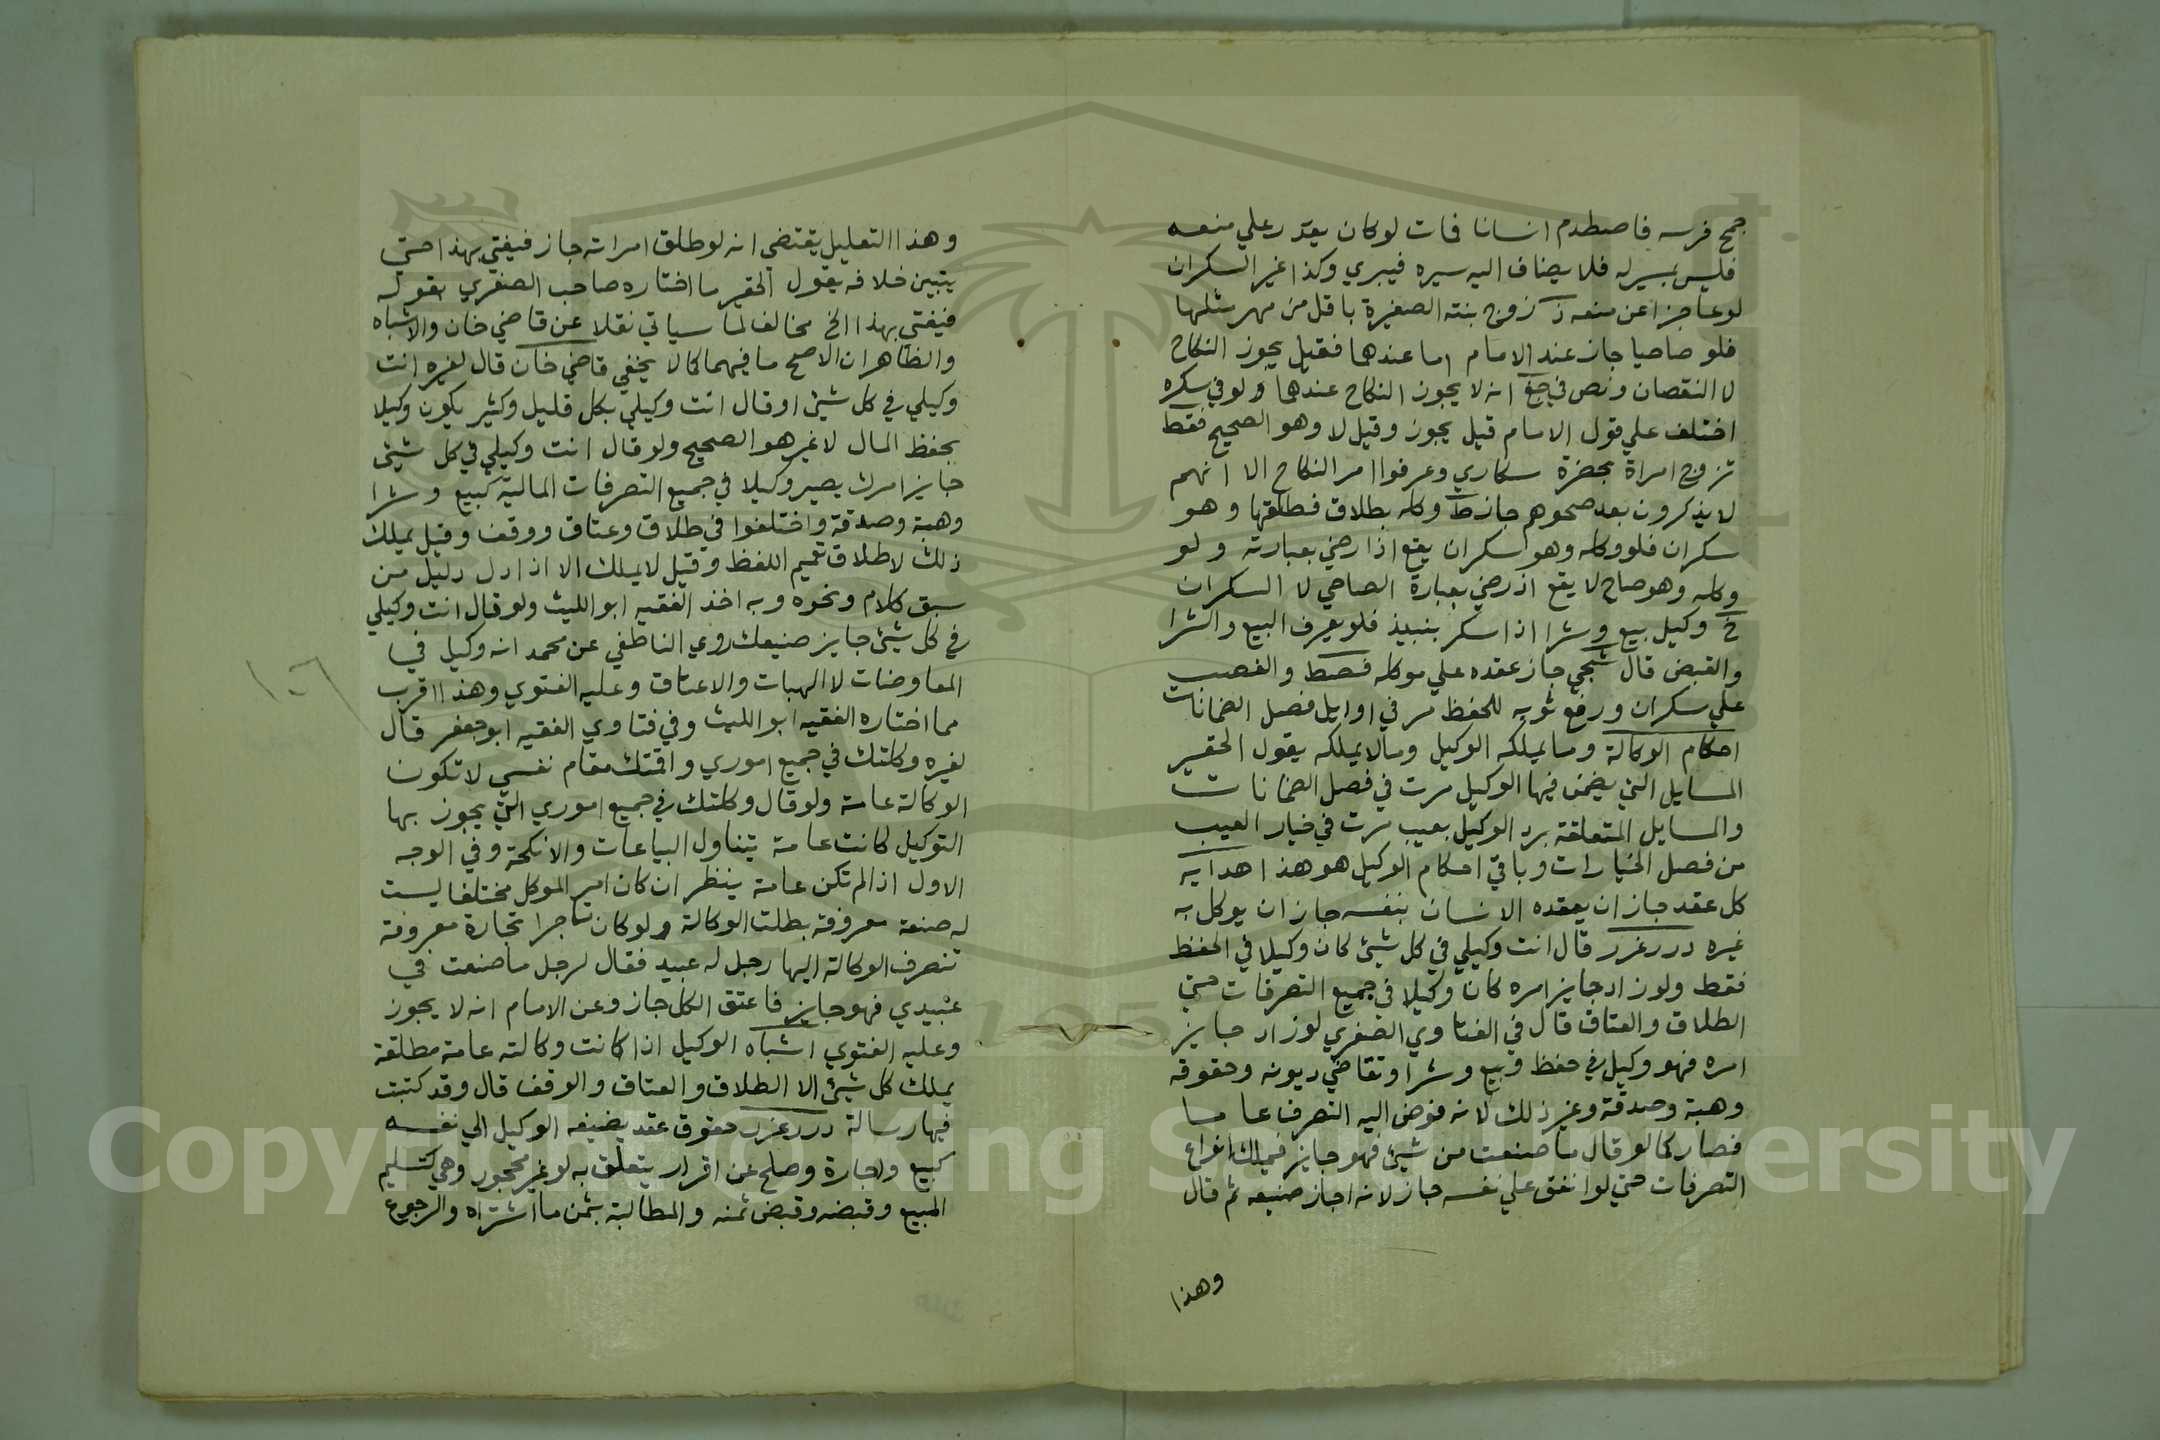 جمح فرسه فاصطدم انسانا فمات لو كان يقدر علي منعه
فليس بمسير له فلا يضاف اليه سيره فيبري وكذا غير السكران
لو عاجزا عن منعه ذ زوج بنته الصغيرة باقل من مهر مثلها
فلو صاحيا جاز عند الامام اما عندهما فقيل يجوز النكاح
لا النقصان ونص في جغ انه لا يجوز النكاح عندهما ولو في سكره
اختلف علي قول الامام قيل يجوز وقيل لا وهو الصحيح فقط
تزوج امراة بحضرة سكاري وعرفوا امر النكاح الا انهم
لا يذكرون بعد صحوهم جاز ط وكله بطلاق فطلقها وهو
سكران فلو وكله وهو سكران يقع اذا رضي بعبارته ولو
وكله وهو صاح لا يقع اذ رضي بعبارة الصاحي لا السكران
خ وكيل بيع وشرا اذا سكر بنبيذ فلو يعرف البيع والشرا
والقبض قال شجي جاز عقده علي موكله فصط والغصب
علي سكران ورفع ثوبه للحفظ مر في اوايل فصل الضمانات
احكام الوكالة وما يملكه الوكيل وما لا يملكه يقول الحقير
المسايل التي يضمن فيها الوكيل مرت في فصل الضمانات
والمسايل المتعلقة برد الوكيل بعيب مرت في خيار العيب
من فصل الخيارات وباقي احكام الوكيل هو هذا هدايه
كل عقد جاز ان يعقده الانسان بنفسه جاز ان يوكل به
غيره درر غرر قال انت وكيلي في كل شيئ كان وكيلا في الحفظ
فقط ولو زاد جايز امره كان وكيلا في جميع التصرفات حتي
الطلاق والعتاق قال في الفتاوي الصغري لو زاد جايز
امره فهو وكيل في حفظ وبيع وشرا وتقاضي ديونه وحقوقه
وهبة وصدقة وغير ذلك لانه فوض اليه التصرف عاما
فصار كما لو قال ما صنعت من شيئ فهو جايز فيملك انواع
التصرفات حتي لو انفق علي نفسه جاز لانه اجاز صنيعه ثم قال
وهذا
وهذا التعليل يقتضي انه لو طلق امراته جاز فيفتي بهذا حتي
يتبين خلافه يقول الحقير ما اختاره صاحب الصغري بقوله
فيفتي بهذا الخ مخالف لما سياتي نقلا عن قاضي خان والاشباه
والظاهر ان الاصح ما فيهما كما لا يخفي قاضي خان قال لغيره انت
وكيلي في كل شيئ او قال انت وكيلي بكل قليل وكثير يكون وكيلا
بحفظ المال لا غير هو الصحيح ولو قال انت وكيلي في كل شيئ
جايز امرك يصير وكيلا في جميع التصرفات المالية كبيع وشرا
وهبة وصدقة واختلفوا في طلاق وعتاق ووقف وقيل يملك
ذلك لاطلاق تعميم اللفظ وقيل لا يملك الا اذا دل دليل من
سبق كلام ونحوه وبه اخذ الفقيه ابو الليث ولو قال انت وكيلي
في كل شيئ جايز صنيعك روي الناطفي عن محمد انه وكيل في
المعاوضات لا الهبات والاعتاق وعليه الفتوي وهذا اقرب
مما اختاره الفقيه ابو الليث وفي فتاوي الفقيه ابو جعفر قال
لغيره وكلتك في جميع اموري واقمتك مقام نفسي لا تكون
الوكالة عامة ولو قال وكلتك في جميع اموري التي يجوز بها
التوكيل كانت عامة يتناول البياعات والانكحة وفي الوجه
الاول اذا لم تكن عامة ينظر ان كان امر الموكل مختلفا ليست
له صنعة معروفة بطلت الوكالة ولو كان تاجرا تجارة معروفة
تنصرف الوكالة اليها رجل له عبيد فقال لرجل ما صنعت في
عبيدي فهو جايز فاعتق الكل جاز وعن الامام انه لا يجوز
وعليه الفتوي اشباه الوكيل اذا كانت وكالته عامة مطلقة
يملك كل شيئ الا الطلاق والعتاق والوقف قال وقد كتبت
فيها رسالة درر غرر حقوق عقد يضيفه الوكيل الي نفسه
كبيع واجارة وصلح عن اقرار يتعلق به لو غير محجور وهي كتسليم
المبيع وقبضه وقبض ثمنه والمطالبة بثمن ما اشتراه والرجوع
١٠٦
Copyright © King Saud University